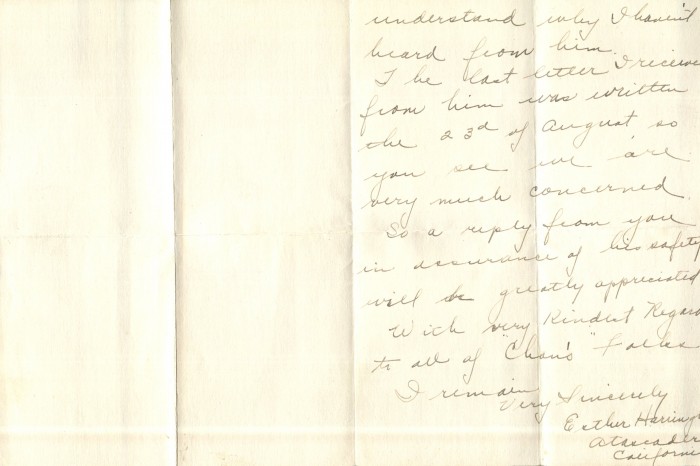 understand why I haven't
heard from him.
The last letter I receive
from him was written
the 23d of August so
you see we are
very much concerned.
So a reply from you
in assurance of his safety
will be greatly appreciated
With very Kindest Regar
to all of "Chan's" Folks
I remain
Very Sincerely
Esther
Atascader
Californi